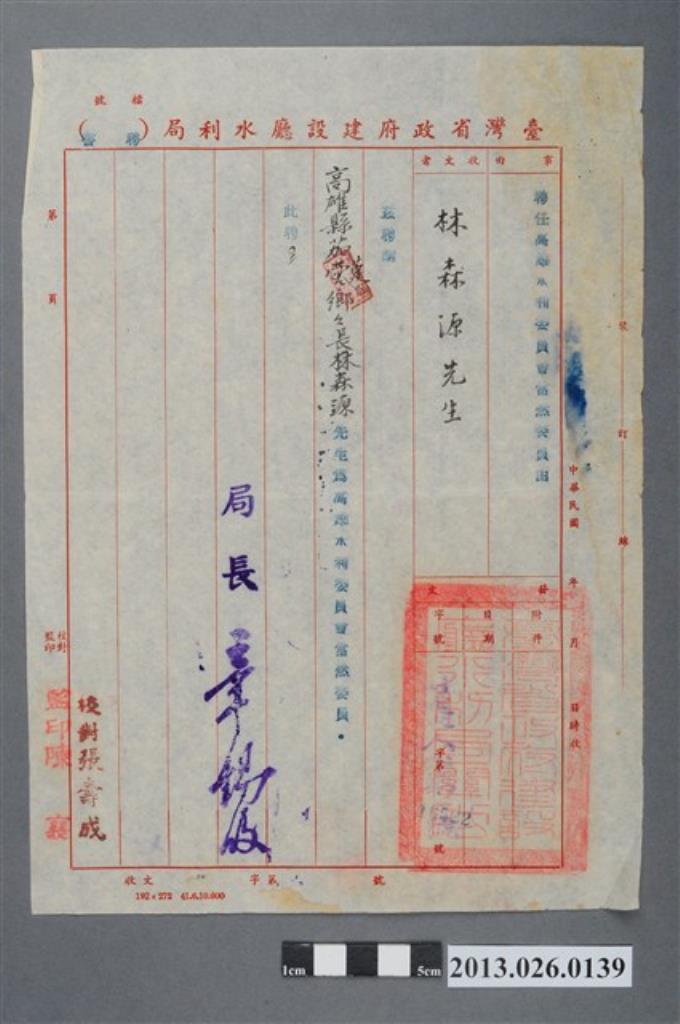 檔號
臺灣省政府建設廳水利局（聘書）
事由
聘任高雄水利委員會當然委員由
受文者
林森源先生
茲聘請
高雄縣茄萣鄉々長林森源先生為高雄水利委員會當然委員。
此聘
局長 章錫綬
第 頁
校對
監印
校對張壽成
監印陳襄
裝訂線
中華民國 年 月 日時收
發文
附件
日期
字號
字第 號
收文 字第 號
192×272 41.6.10.000
1cm 5cm
2013.026.0139